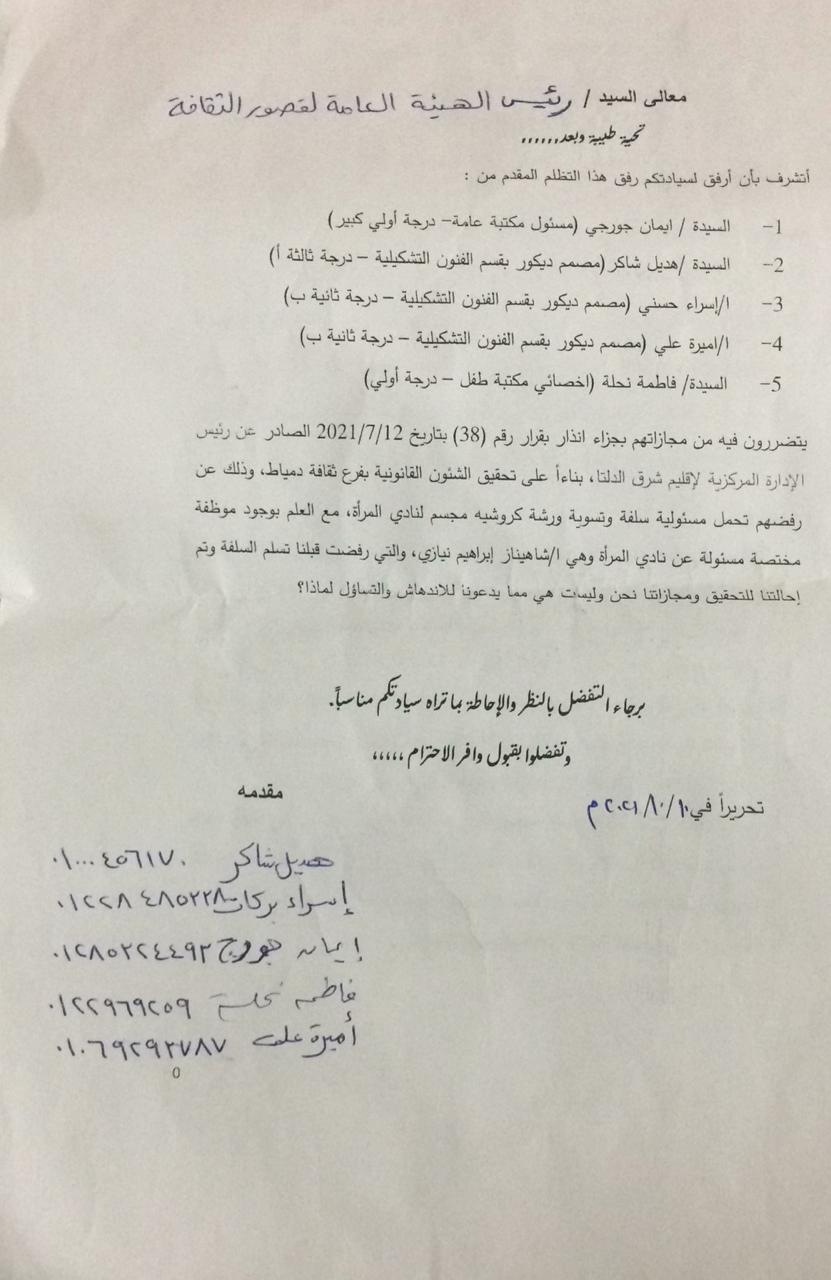 معالى السيد / رئيس الهيئة العامة لقصور الثقافة
تحية طيبة وبعد......
أتشرف بأن أرفق لسيادتكم رفق هذا التظلم المقدم من :
1- السيدة / ايمان جورجي (مسئول مكتبة عامة- درجة أولي كبير)
2- السيدة /هديل شاكر (مصمم ديكور بقسم الفنون التشكيلية – درجة ثالثة أ)
3- ا/إسراء حسني (مصمم ديكور بقسم الفنون التشكيلية – درجة ثانية ب)
4- ا/اميرة علي (مصمم ديكور بقسم الفنون التشكيلية – درجة ثانية ب)
5- السيدة/ فاطمة نحلة (اخصائي مكتبة طفل – درجة أولي)
يتضررون فيه من مجازاتهم بجزاء انذار بقرار رقم (38) بتاريخ 2021/7/12 الصادر عن رئيس
الإدارة المركزية لإقليم شرق الدلتا، بناءاً على تحقيق الشئون القانونية بفرع ثقافة دمياط، وذلك عن
رفضهم تحمل مسئولية سلفة وتسوية ورشة كروشيه مجسم لنادي المرأة، مع العلم بوجود موظفة
مختصة مسئولة عن نادي المرأة وهي ا/شاهيناز إبراهيم نيازي، والتي رفضت قبلنا تسلم السلفة وتم
إحالتنا للتحقيق ومجازاتنا نحن وليست هي مما يدعونا للاندهاش والتساؤل لماذا؟
برجاء التفضل بالنظر والإحاطة بما تراه سيادتكم مناسباً.
وتفضلوا بقبول وافر الاحترام ،،،،،
مقدمه
تحريراً في ١٠/ ٨/ ٢٠٢١ م
هديل شاكر ٠١٠٠٠٤٥٦١٧٠
إسراء بركات ٠١٢٢٨٤٨٥٢٢٨
إيمان جورج ٠١٢٨٥٢٢٤٤٩٣
فاطمه نحلة ٠١٢٢٩٦٩٢٥٩
أميرة على ٠١٠٦٩٢٩٢٧٨٧